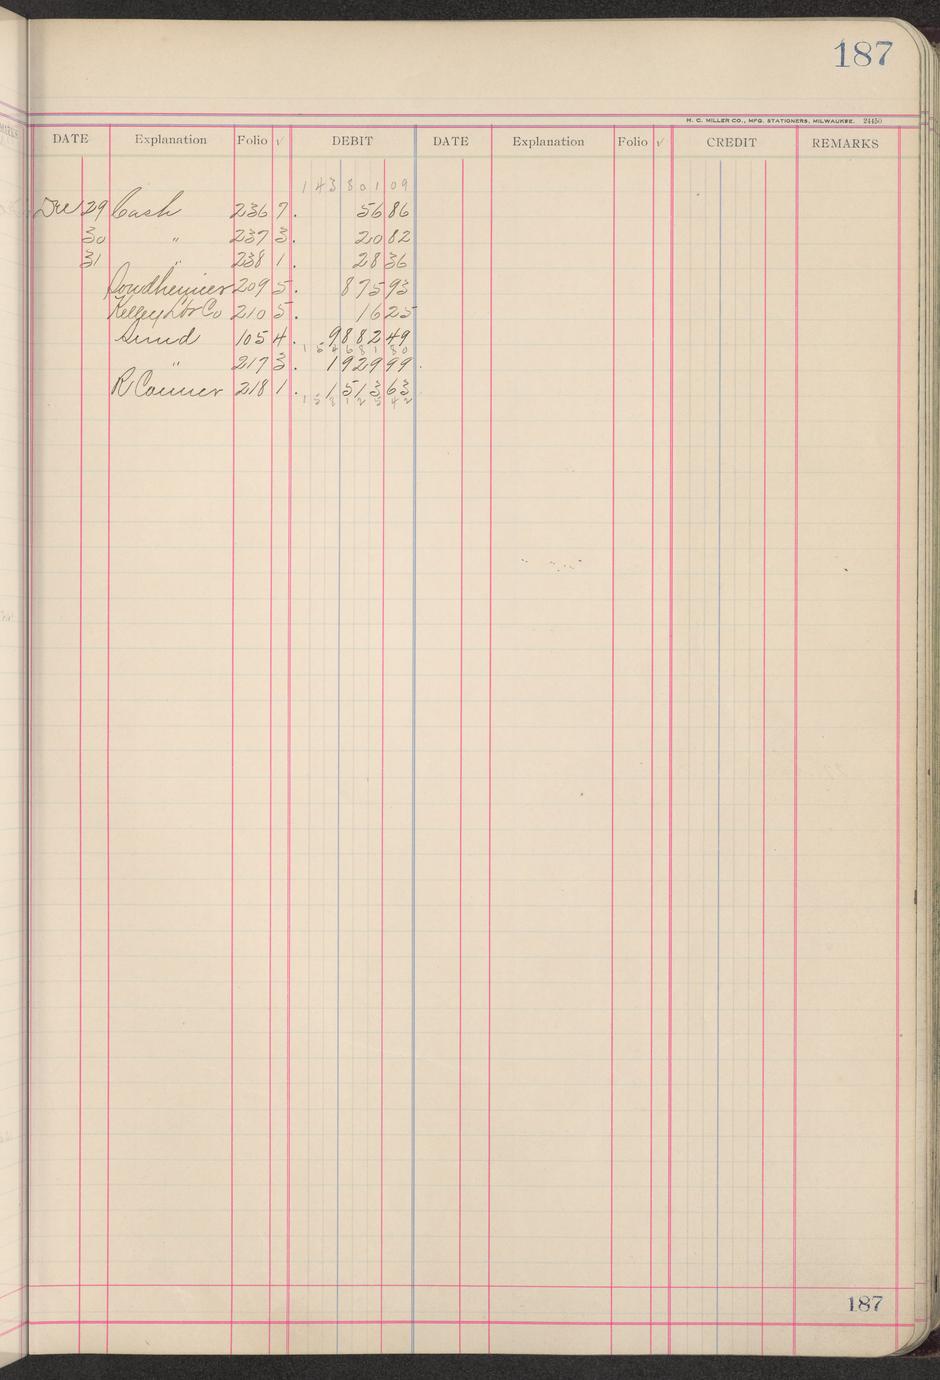 187
H. C. MILLER CO., MFG. STATIONERS, MILWAUKEE. 24450
DATE Explanation Folio √ DEBIT DATE Explanation Folio √ CREDIT REMARKS
1 4 3 8 0 1 0 9
Dec 29 Cash 236 7. 56 86
30 " 237 3. 20 82
31 " 238 1. 28 36
Sondheimer 209 5. 875 93
Kelley Lbr Co 210 5. 16 25
Sund 105 4. 9882 49
" 217 3. 1929 99
R Conner 218 1. 1513 63
1 5 8 1 2 5 4 2
187